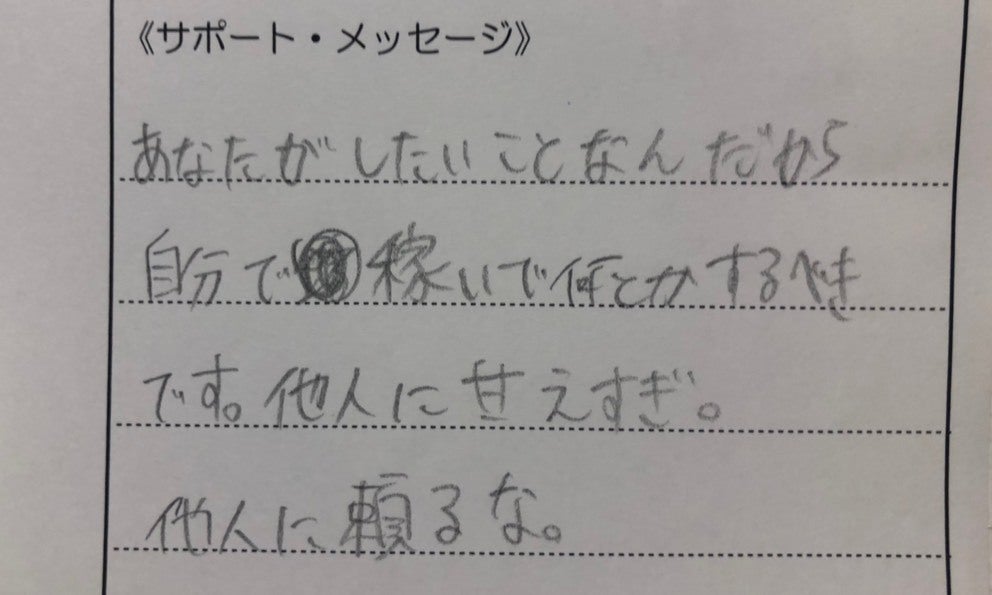 《サポート・メッセージ》
あなたがしたいことなんだから
自分で稼いで何とかするべき
です。他人に甘えすぎ。
他人に頼るな。